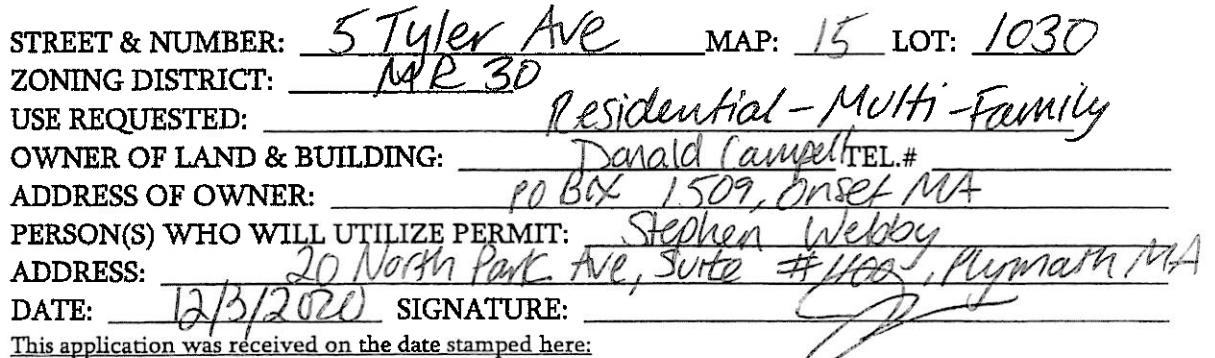 STREET & NUMBER: 5 Tyler Ave MAP: 15 LOT: 1030
ZONING DISTRICT: MR 30
USE REQUESTED: Residential - Multi-Family
OWNER OF LAND & BUILDING: Donald Campell TEL.#
ADDRESS OF OWNER: PO Box 1509, Onset MA
PERSON(S) WHO WILL UTILIZE PERMIT: Stephen Webby
ADDRESS: 20 North Park Ave, Suite # , Plymoath MA
DATE: 12/3/2020 SIGNATURE:
This application was received on the date stamped here: